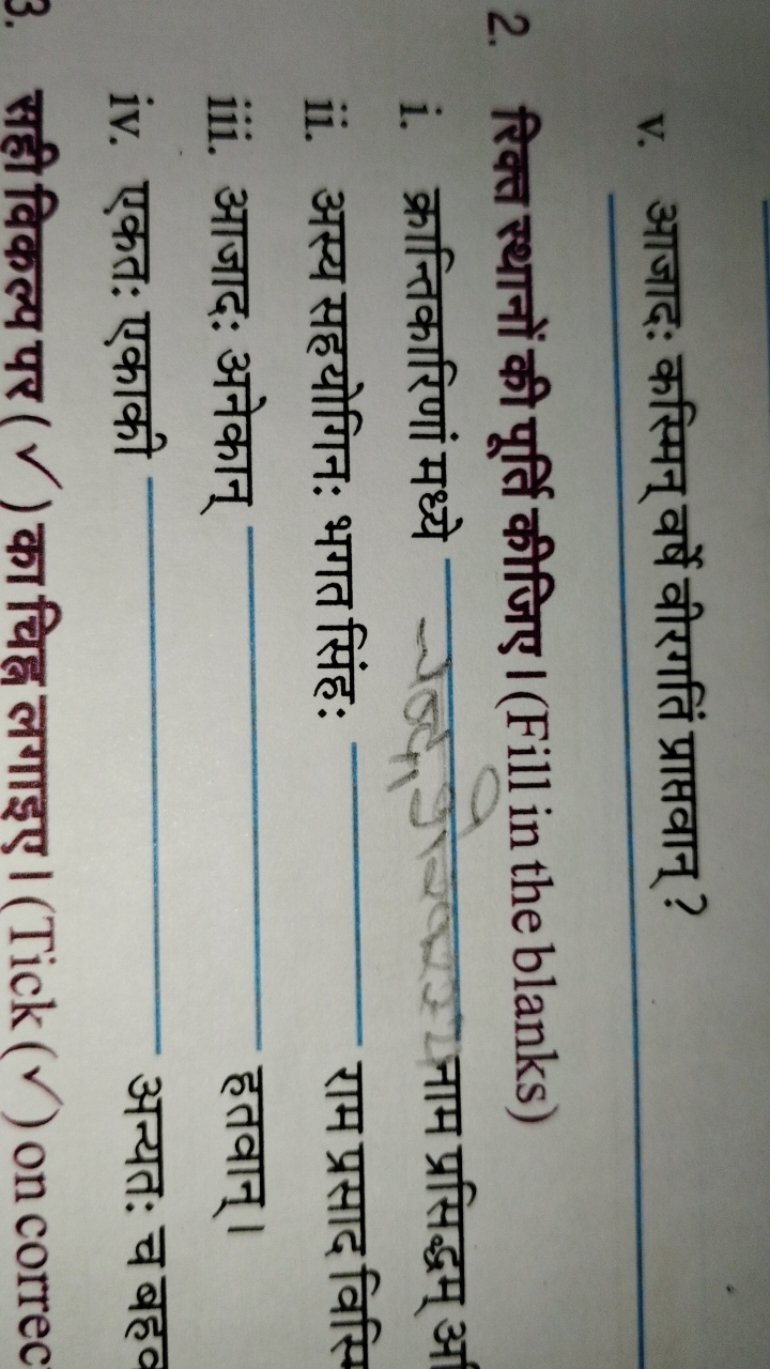 v. आजादः कस्मिन् वर्षे वीरगतिं प्राप्तवान् ?
2. रिक्त स्थानों की पूर्ति कीजिए । (Fill in the blanks)
i. क्रान्तिकारिणां मध्ये नाम प्रसिद्धम्
ii. अस्य सहयोगिनः भगत सिंहः राम प्रसाद
iii. आजादः अनेकान् हतवान् ।
iv. एकतः एकाकी अन्यतः च
3. सही विकल्प पर ( ✓ ) का चिह्न लगाइए । (Tick ( ✓ ) on